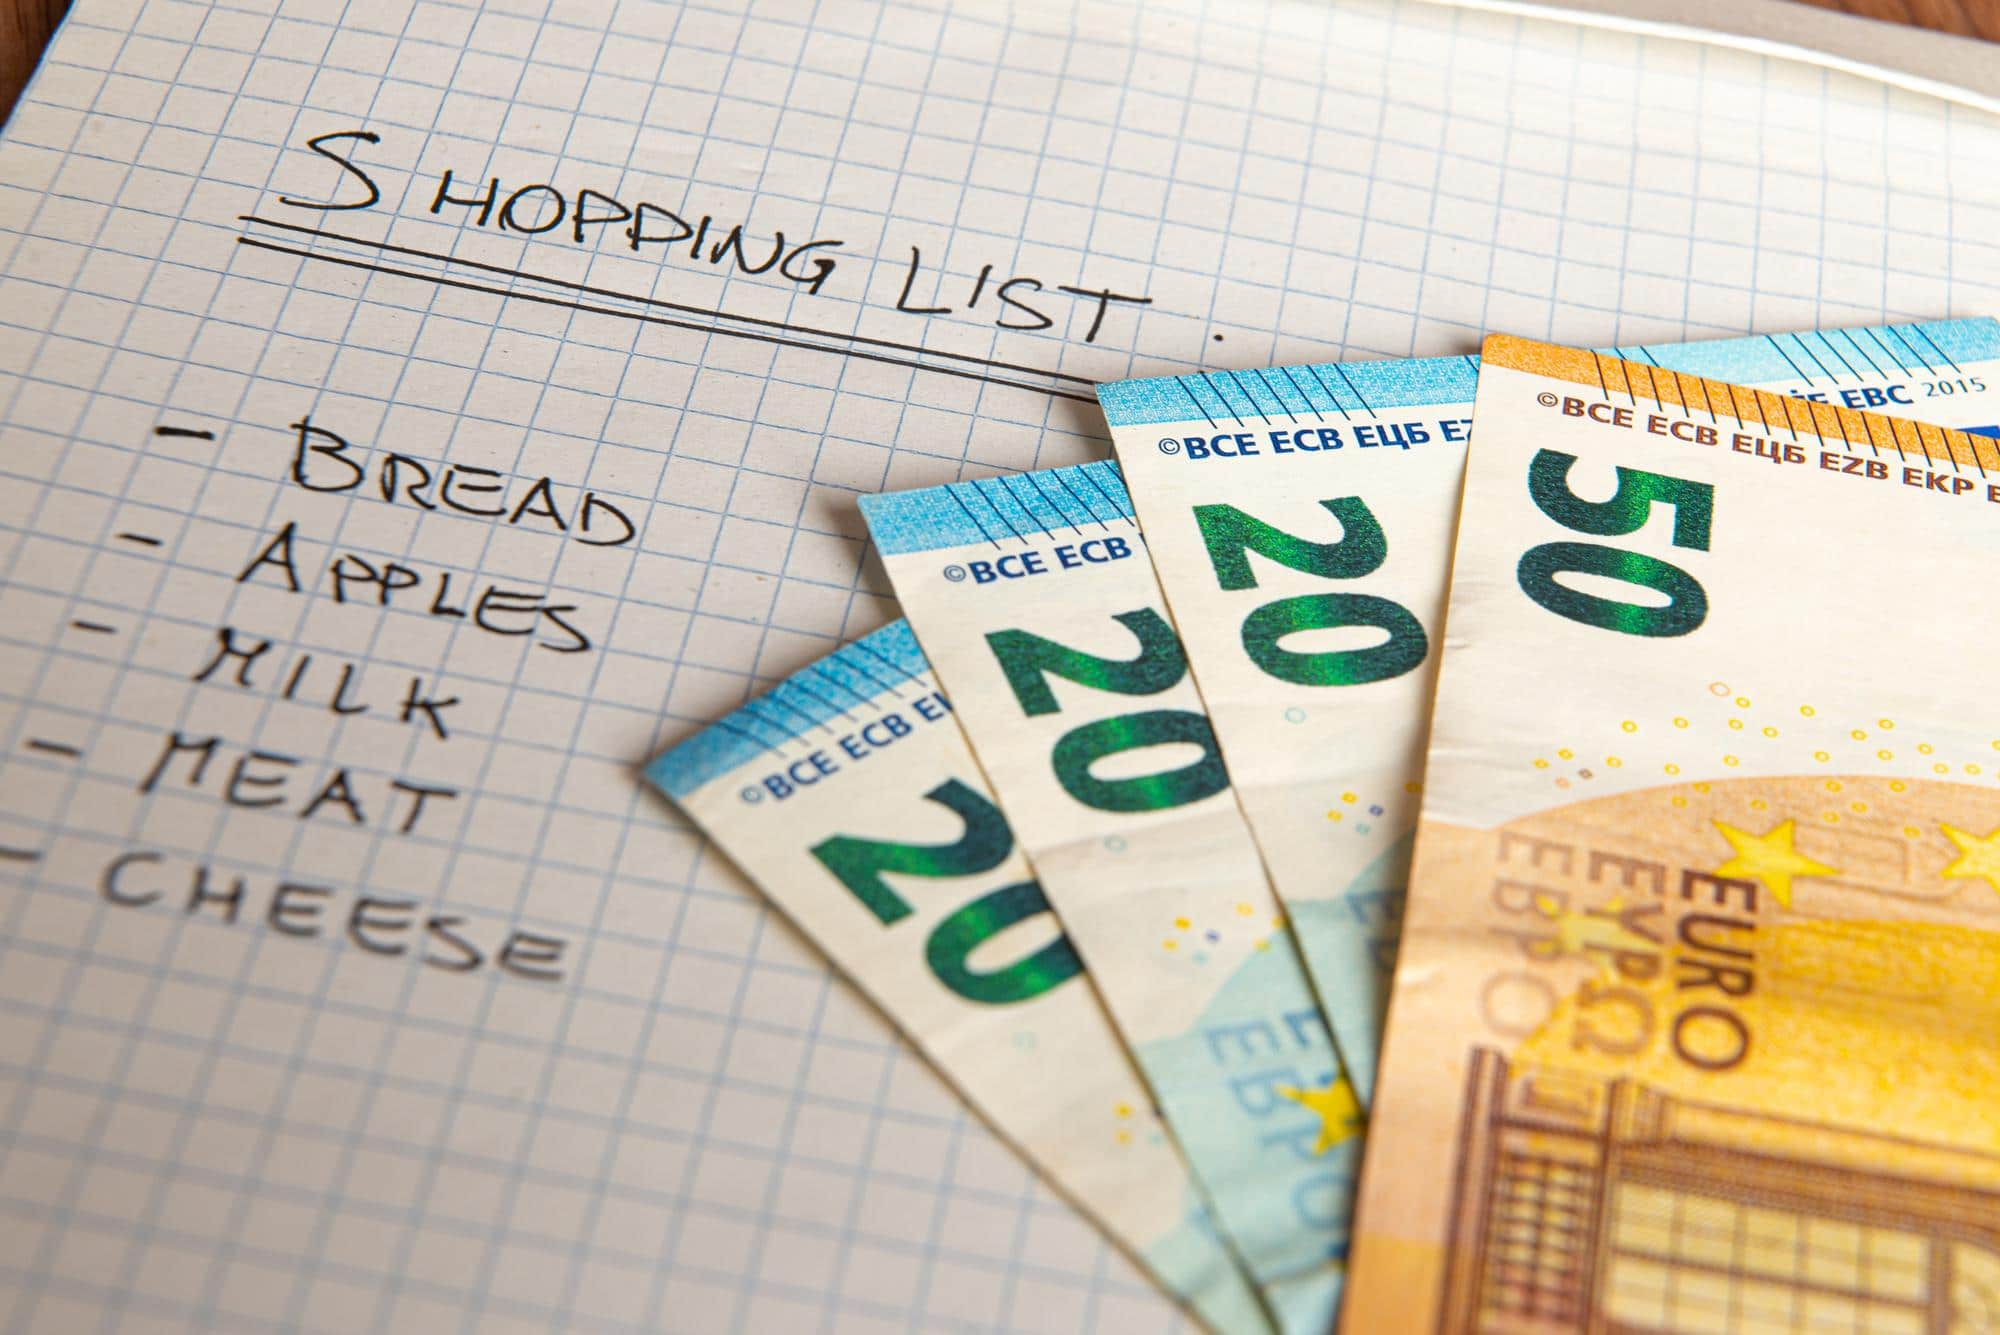 SHOPPING LIST.
- BREAD
- APPLES
- MILK
- MEAT
- CHEESE
©BCE ECB
20
©BCE ECB
20
©BCE ECB ЕЦБ
20
©BCE ECB ЕЦБ EZB EKP
50
EURO
ΕΥΡΩ
ЕВРО
EBC 2015